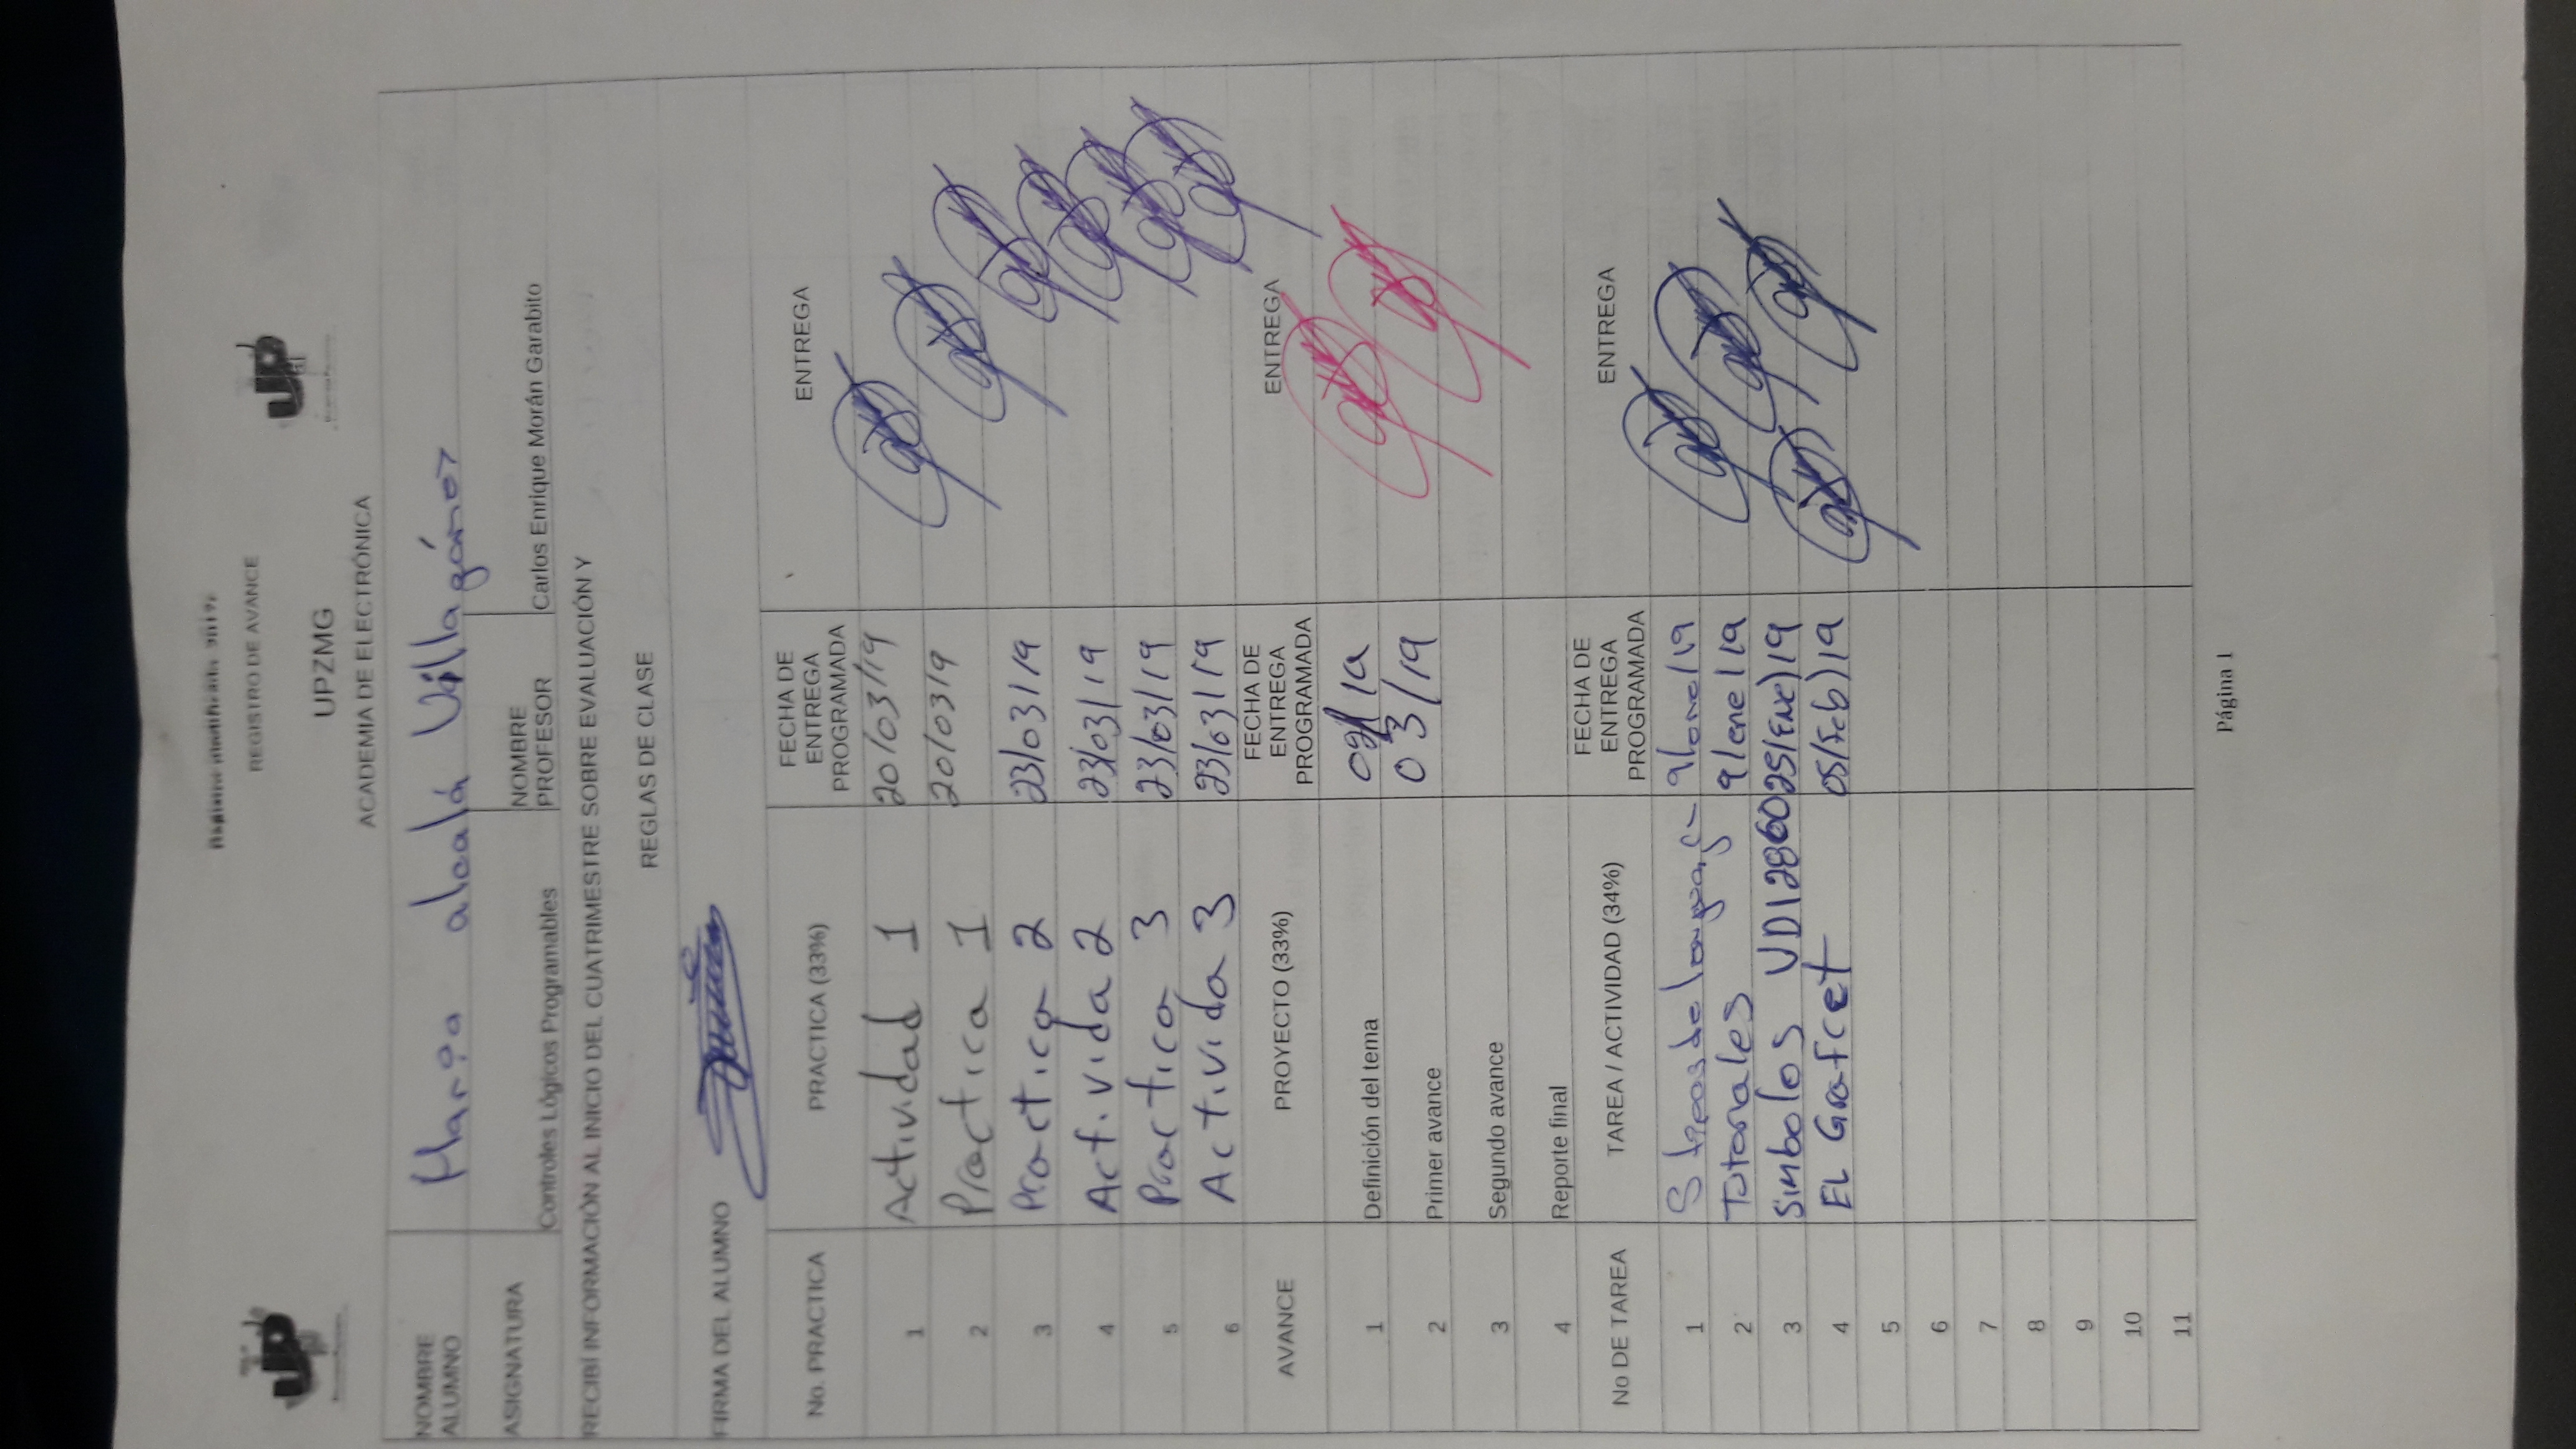 REGISTRO DE AVANCE
UPZMG
ACADEMIA DE ELECTRÓNICA
NOMBRE ALUMNO María alcalá Villagómez
ASIGNATURA Controles Lógicos Programables NOMBRE PROFESOR Carlos Enrique Morán Garabito
RECIBÍ INFORMACIÓN AL INICIO DEL CUATRIMESTRE SOBRE EVALUACIÓN Y
REGLAS DE CLASE
FIRMA DEL ALUMNO
No. PRACTICA PRACTICA (33%) FECHA DE ENTREGA PROGRAMADA ENTREGA
1 Actividad 1 20/03/19
2 Practica 1 20/03/9
3 Practica 2 23/03/19
4 Activida 2 23/03/19
5 Practica 3 23/03/19
6 Activida 3 23/03/19
AVANCE PROYECTO (33%) FECHA DE ENTREGA PROGRAMADA ENTREGA
1 Definición del tema 02/19
2 Primer avance 03/19
3 Segundo avance
4 Reporte final
No DE TAREA TAREA / ACTIVIDAD (34%) FECHA DE ENTREGA PROGRAMADA ENTREGA
1 5 tipos de 9/ene/19
2 Tutoriales 9/ene/19
3 Simbolos VDI2860 25/Ene/19
4 EL Grafcet 05/Feb/19
5
6
7
8
9
10
11
Página 1